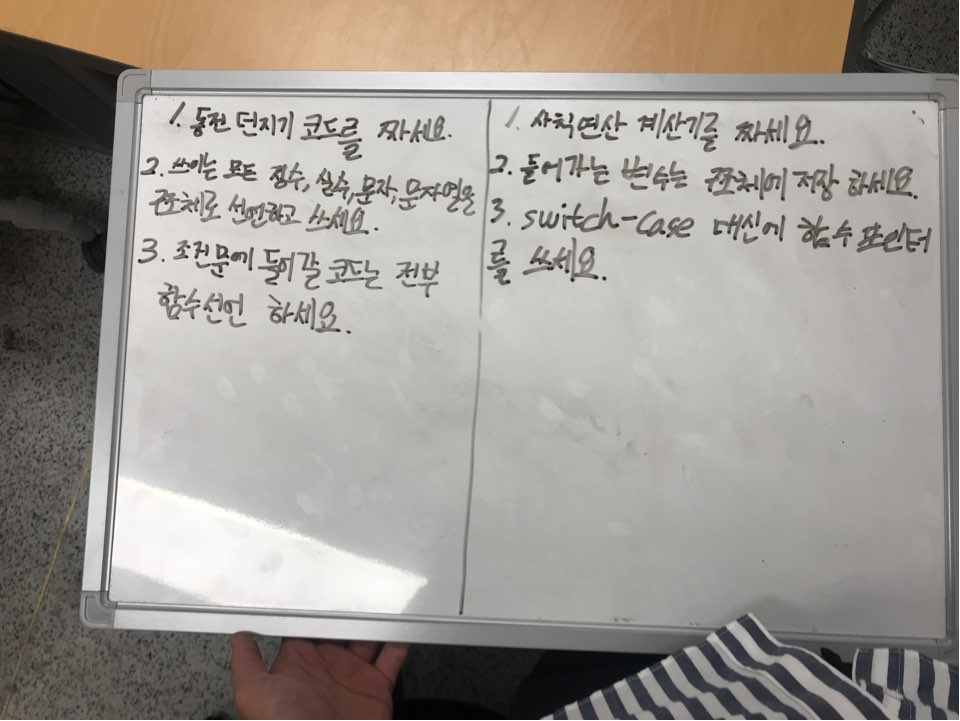 1. 동전 던지기 코드를 짜세요.
2. 쓰이는 모든 정수, 실수, 문자, 문자열은
구조체로 선언하고 쓰세요.
3. 조건문에 들어갈 코드는 전부
함수선언 하세요.
1. 사칙연산 계산기를 짜세요.
2. 들어가는 변수는 구조체에 저장 하세요.
3. switch-case 대신에 함수 포인터
를 쓰세요.